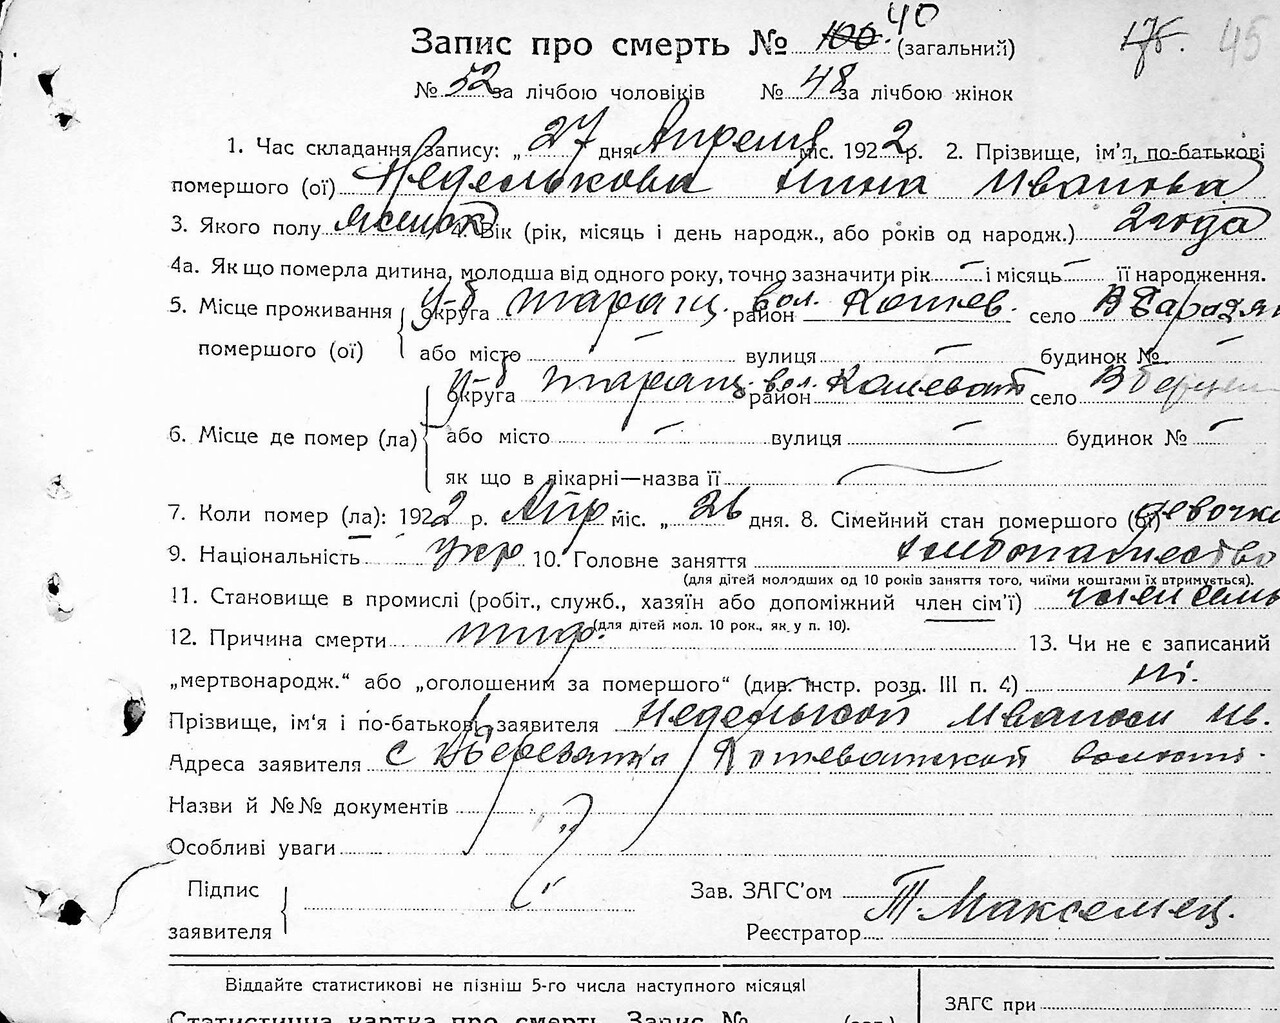 40
Запис про смерть № 100. (загальний) 45
№ 52 за лічбою чоловіків № 48 за лічбою жінок
1. Час складання запису: „ 27 дня Апреля міс. 1922 р. 2. Прізвище, ім’я, по-батькові
помершого (ої) Неделькова Нина Иванова
3. Якого полу 4. Вік (рік, місяць і день народж., або років од народж.) 2 года
4а. Як що померла дитина, молодша від одного року, точно зазначити рік – і місяць – її народження.
5. Місце проживання округа у-д Таращ. район вол. Кошев. село
помершого (ої) або місто – вулиця – будинок № –
округа у-д Таращ. район вол. Кошеват село
6. Місце де помер (ла) або місто – вулиця – будинок № –
як що в лікарні—назва її
7. Коли помер (ла): 1922 р. Апр міс. „ 26 дня. 8. Сімейний стан помершого (ої) девочка
9. Національність укр 10. Головне заняття хлебопашество
(для дітей молодших од 10 років заняття того, чиїми коштами їх втримується).
11. Становище в промислі (робіт., служб., хазяїн або допоміжний член сім’ї) член семь
(для дітей мол. 10 рок., як у п. 10).
12. Причина смерти тиф. 13. Чи не є записаний
„мертвонародж.“ або „оголошеним за помершого“ (див. інстр. розд. III п. 4) ні.
Прізвище, ім‘я і по-батькові заявителя Ив.
Адреса заявителя с Березянка Кошеватской волости.
Назви й №№ документів
Особливі уваги
Підпис Зав. ЗАГС’ом
Т. Максемец.
заявителя Реєстратор
Віддайте статистикові не пізніш 5-го числа наступного місяця!
ЗАГС при
Статистична картка про смерть. Запис № (заг.)